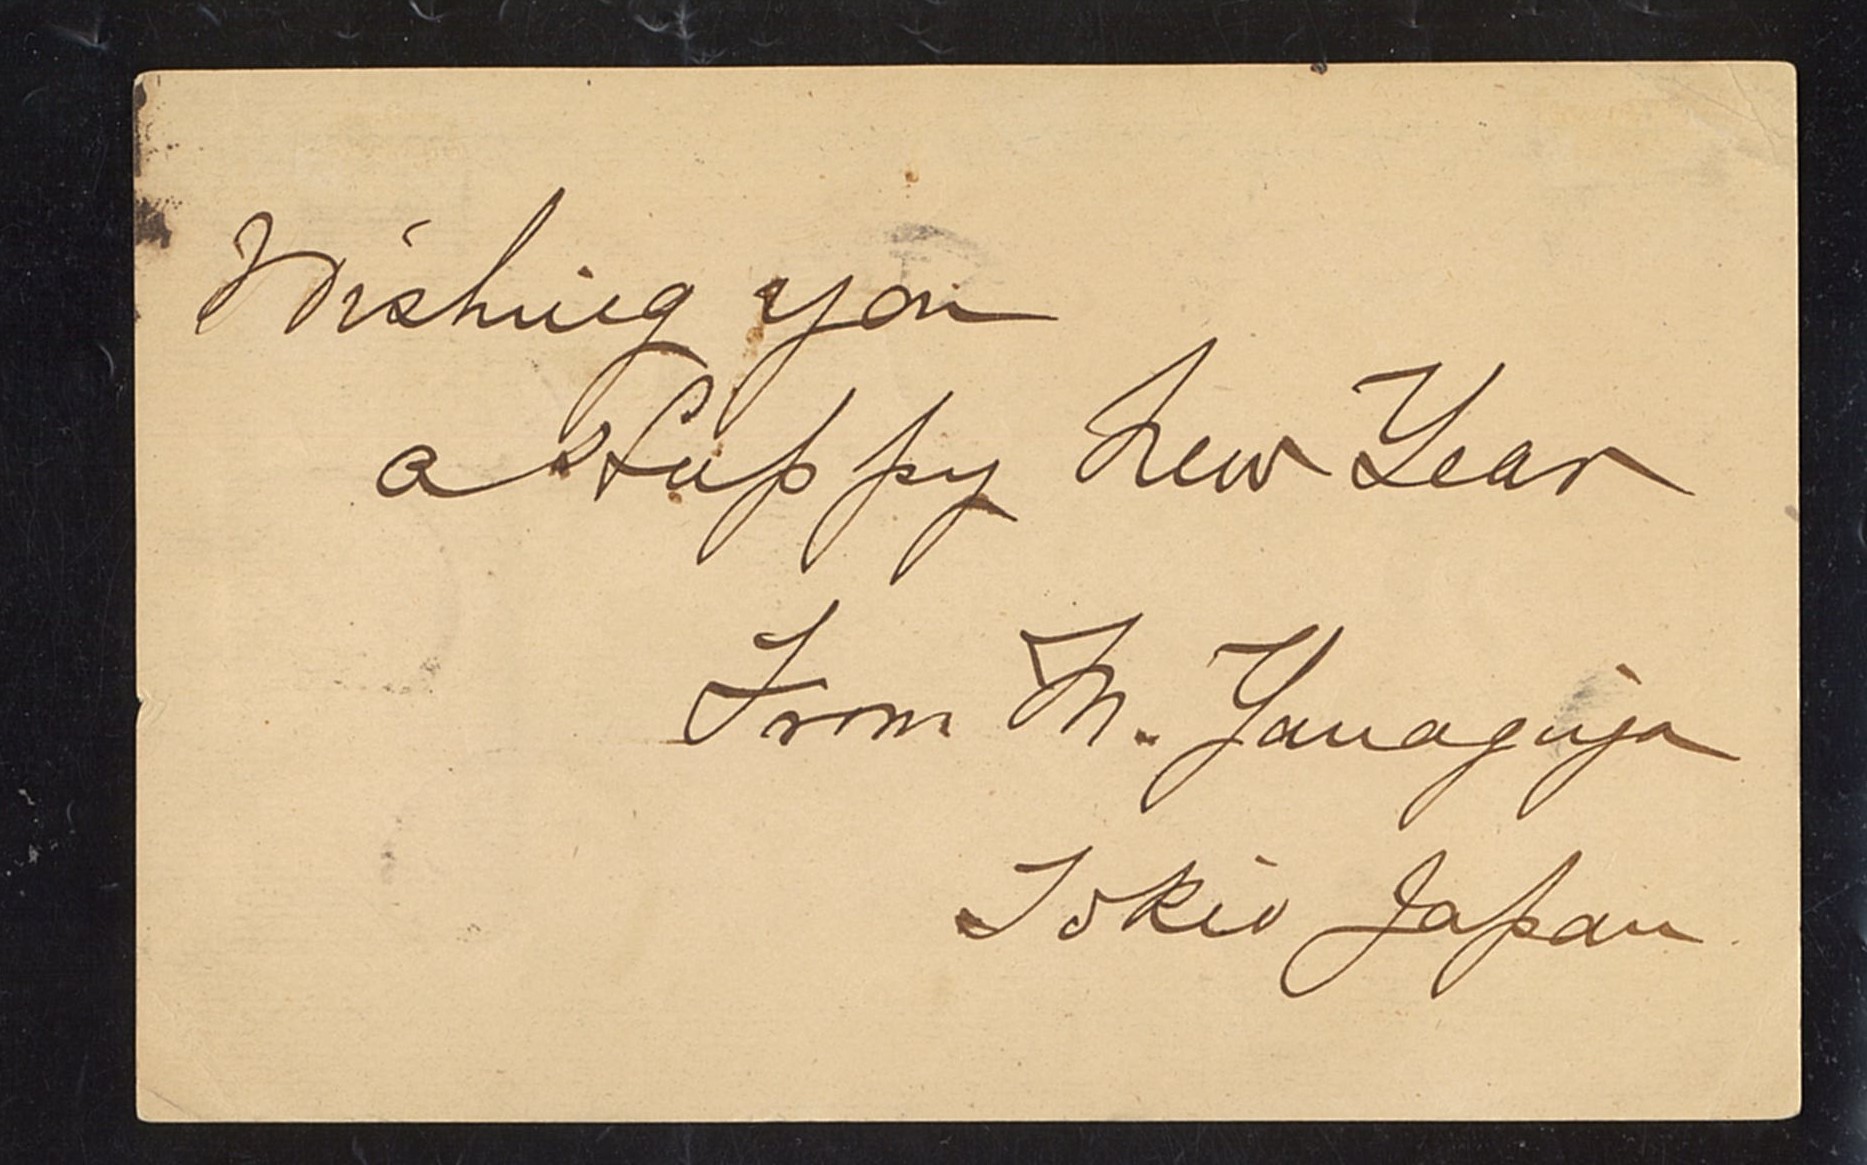 Wishing you
a Happy New Year
From M. Yanagiya
Tokio Japan